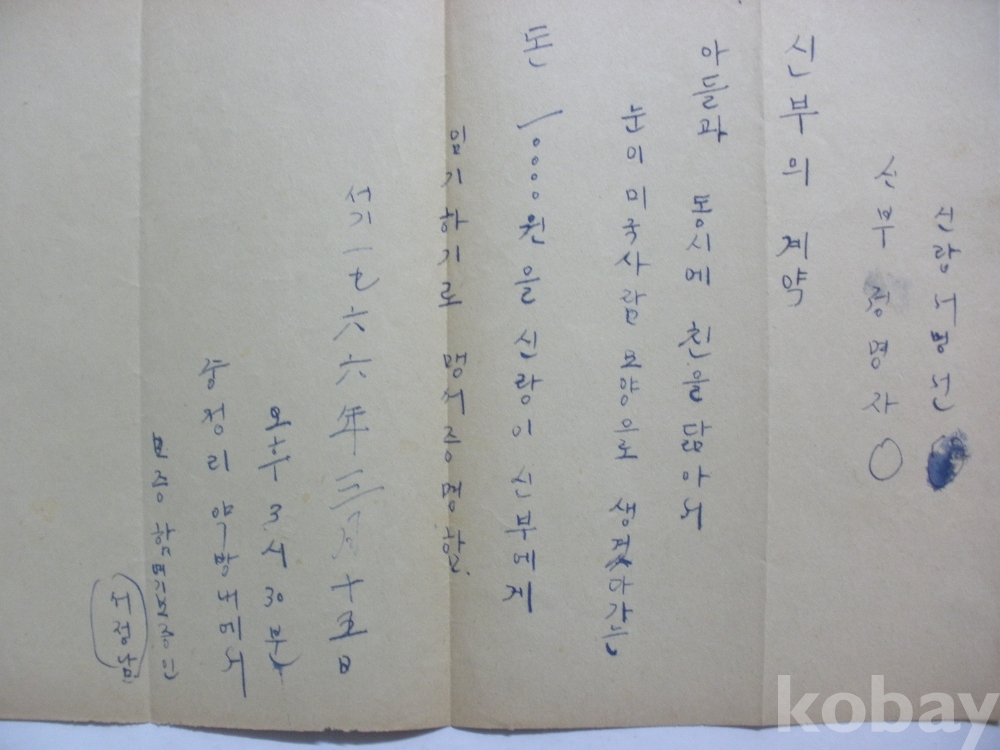 신랑 서병선
신부 정명자
신부의 계약
아들과 동시에 친을 닮아서
눈이 미국사람 모양으로 생겻다가는
돈 10000원을 신랑이 신부에게
임기하기로 맹서증명함.
서기 一九六六年 三月 十五日
오후 3시 30분
중정리 약방서에서
보증함
서정남
kobay